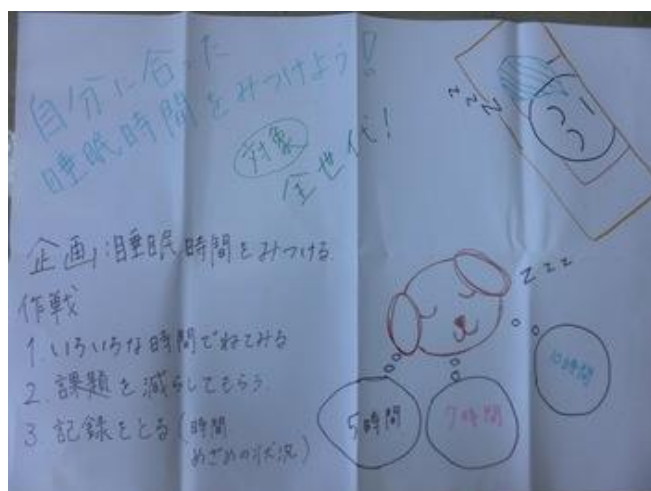 自分に合った
睡眠時間をみつけよう!
対象
全世代!
zzz
企画:睡眠時間をみつける
作戦
1. いろいろな時間でねてみる
2. 課題を減らしてもらう
3. 記録をとる(時間
めざめの状況)
zzz
5時間
7時間
10時間